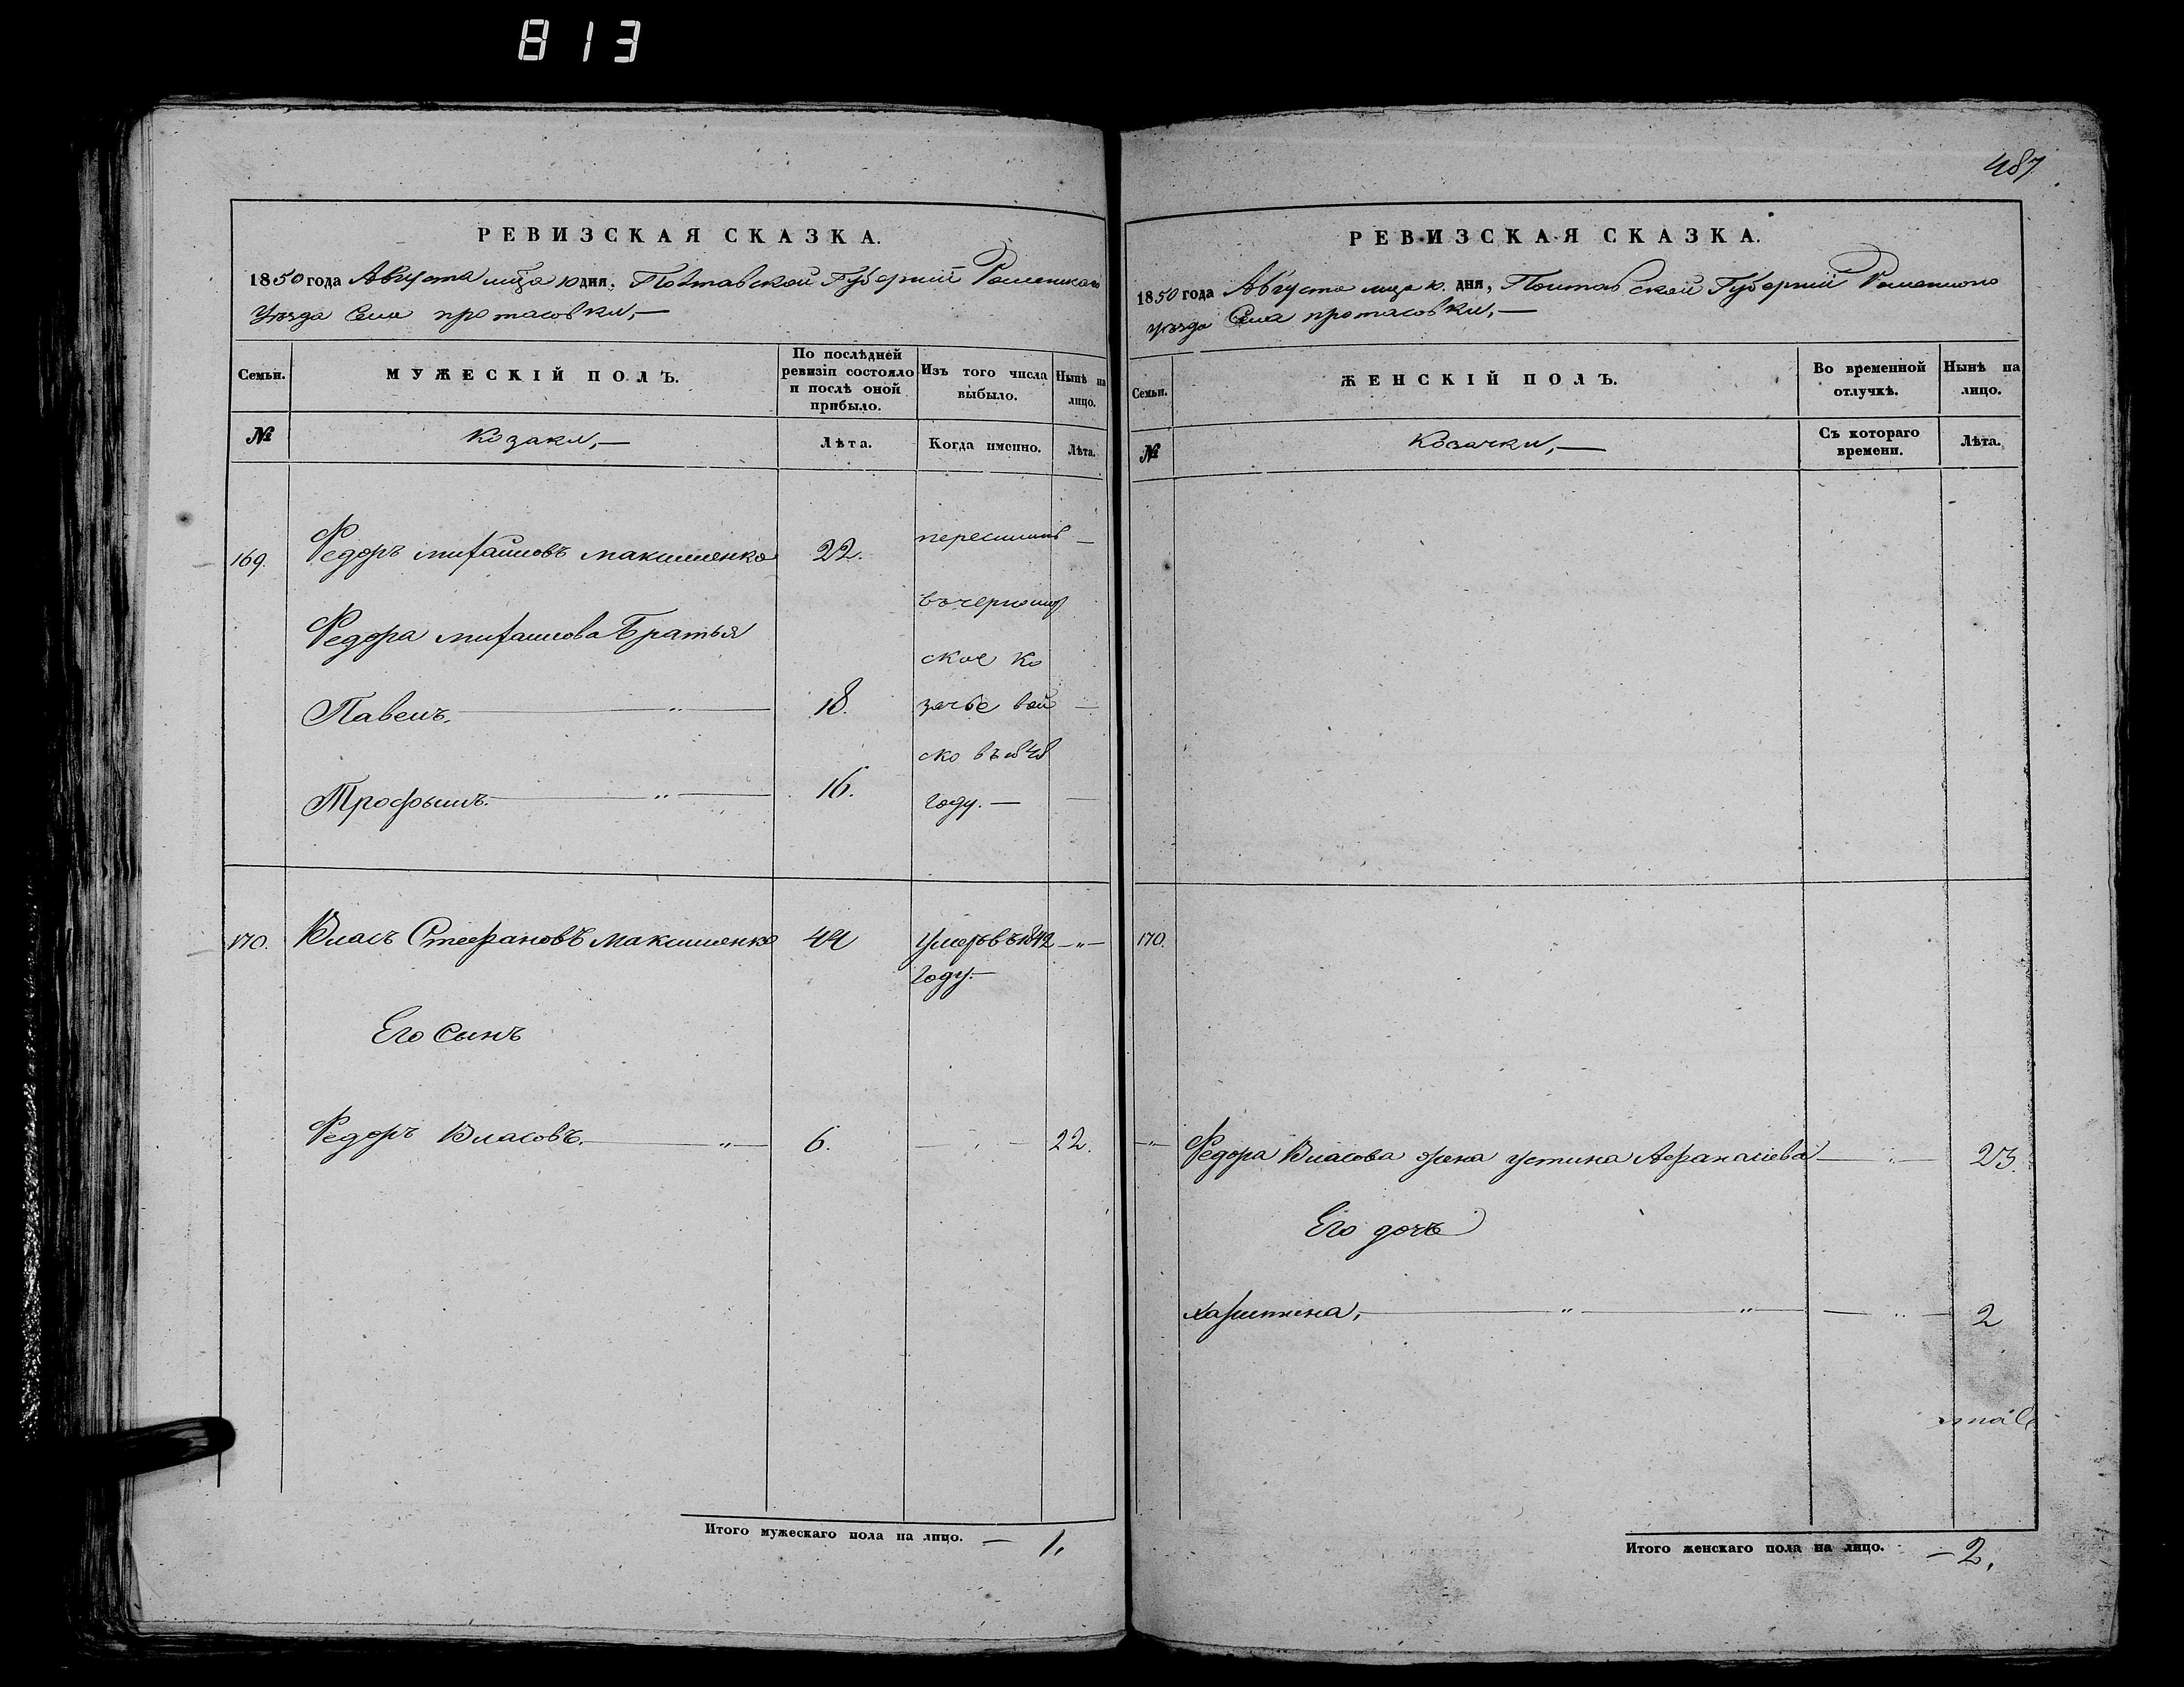 813
РЕВИЗСКАЯ СКАЗКА.
1850 года Августа мца 10 дня, Полтавской Губернiи Роменскаго
Уѣзда Села протасовки,—
Семьи. МУЖЕСКІЙ ПОЛЪ. По послѣдней ревизіи состояло и послѣ оной прибыло. Изъ того числа выбыло. Нынѣ на лицо.
№ Козаки,— Лѣта. Когда именно. Лѣта.
169. Федоръ михайловъ максименко 22. переселил —
въ черномор
Федора михайлова Братья
ское ко
Павелъ. — " — 18. зачье вой —
ско въ 1848
Трофымъ. — " — 16. году. — —
170. Власъ Стефановъ максименко 44 умеръ въ 1842 — " —
году.—
Его Сынъ
Федоръ Власовъ. — " — 6. — " — 22.
Итого мужескаго пола на лицо. — 1.
487
РЕВИЗСКАЯ СКАЗКА.
1850 года Августа мца 10. дня, Полтавской Губернiи Роменского
уѣзда Села протасовки,—
Семьи. ЖЕНСКІЙ ПОЛЪ. Во временной отлучкѣ. Нынѣ на лицо.
№ Козачки,— Съ котораго времени. Лѣта.
170.
— " — Федора Власова жена устина Афанасiева — " — 23.
Его дочь
харитина, — " — " — — " — 2
Итого женскаго пола на лицо. — 2.